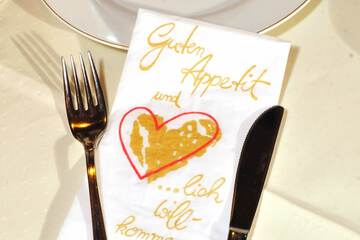 Guten
Appetit
und
...lich
Will-
komme